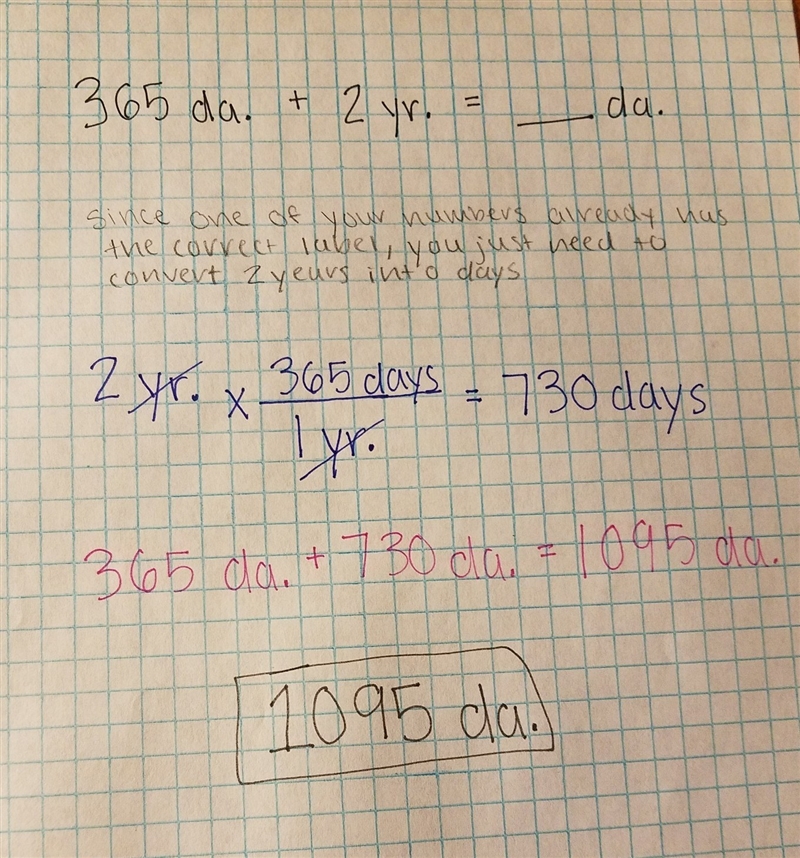 365 da. + 2 yr. = ___ da.
since one of your numbers already has
the correct label, you just need to
convert 2 years into days
2 yr. x 365 days / 1 yr. = 730 days
365 da. + 730 da. = 1095 da.
1095 da.